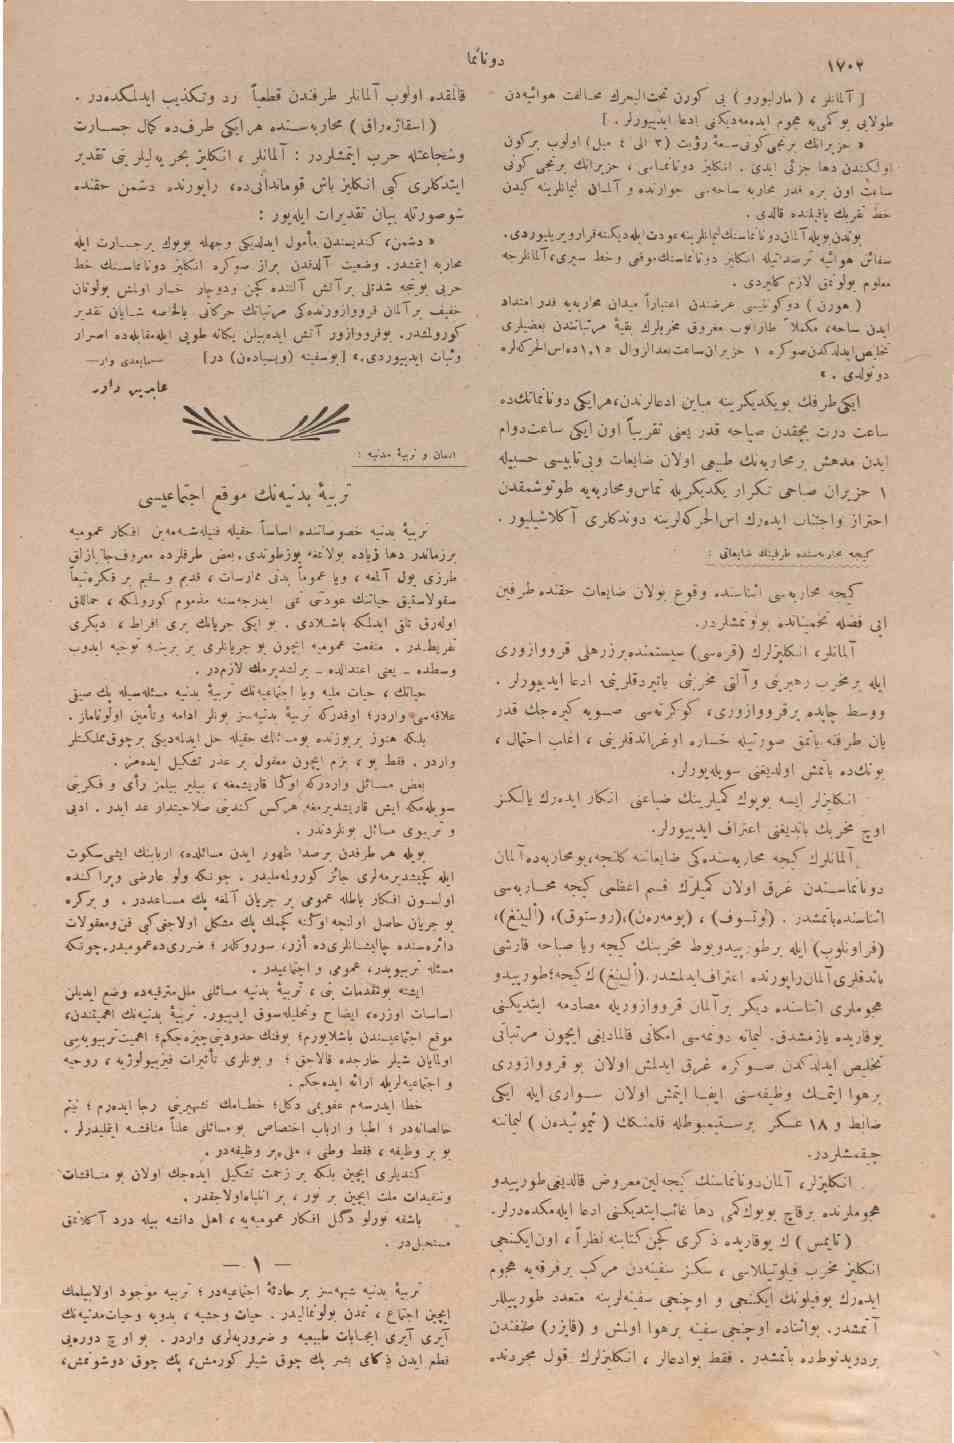 ١٧٠٢
دونانما
[ آلمانلر ، ( مارلبورو ) يی كورن تحت‌البحرك مخالفت هوائيه‌دن
طولايی بو كمی‌يه هجوم ايده‌مه‌ديكنی ادعا ايديیورلر . ]
« حزيرانك برنجی كونی سعهٔ رؤيت (٣ الی ٤ ميل) اولوب بر كون
اولكندن دها جزئی ايدی . انكليز دونانماسی ، حزيرانك برنجی كونی
ساعت اون بره قدر محاربه ساحه‌سی جوارنده و آلمان ليمانلرينه كيدن
خط تقربك ياقيننده قالدی .
بوندن بويله آلمان دونانماسنك ليمانلرينه عودت ايله‌ديكنه قرار ويريليوردی.
سفائن هوائيه ترصداتيله انكليز دونانماسنك موقعی وخط سيری، آلمانلرجه
معلوم بولونمق لازم كليردی .
( هورن ) دوكونسی عرضندن اعتباراً ميدان محاربه‌يه قدر امتداد
ايدن ساحه ، مكملاً طارانوب مغروق مخربلرك بقيهٔ مرتباتندن بعضيلری
تخليص ايدلدكدن صوكره ١ حزيران ساعت بعدالزوال ١,١٥ده اس‌الحركه‌لره
دونولدی . »
ايكی طرفك بويكديكرينه مباين ادعالرندن، هر ايكی دونانمانك ده
ساعت درت بچقدن صباحه قدر يعنی تقريباً اون ايكی ساعت دوام
ايدن مدهش بر محاربه‌نك طبيعی اولان ضايعات و بی‌تابيسی حسبيله
١ حزيران صباحی تكرار يكديكريله تماس و محاربه‌يه طوتوشمقدن
احتراز و اجتناب ايده‌رك اس‌الحركه‌لرينه دوندكلری آكلاشيليور .
كيجه محاربه‌سنده طرفينك ضايعاتی :
كيجه محاربه‌سی اثناسنده وقوع بولان ضايعات حقنده طرفين
ايی فضله تخميناتده بولونمشلردر.
آلمانلر، انكليزلرك (قره‌سی) سيستمنده برزرهلی قرووازوری
ايله بر مخرب رهبرينی و آلتی مخربنی باتيردقلرينی ادعا ايديیورلر .
ووسط چاپده برقرووازوری، كوكرته‌سی صويه كيره‌جك قدر
يان طرفنه ياتمق صورتيله خساره اوغراتدقلرينی ، اغلب احتمال ،
بونك ده باتمش اولديغنی سويله‌يورلر.
انكليزلر ايسه بويوك كميلرينك ضياعنی انكار ايده‌رك يالكز
اوچ مخربك باتديغنی اعتراف ايديیورلر.
آلمانلرك كيجه محاربه‌سنده‌كی ضايعاتنه كلنجه، بو محاربه‌ده آلمان
دونانماسندن غرق اولان كميلرك قسم اعظمی كيجه محاربه‌سی
اثناسنده باتمشدر . (لوتسوف) ، (پومه‌رن)، (روستوق)، (ألبينغ)،
(فراونلوب) ايله برطورپيدوبوط مخربنك كيجه ويا صباحه قارشی
باتدقلری آلمان راپورنده اعتراف ايدلمشدر. (ألبينغ) ك كيجه ؛ طورپيدو
هجوملری اثناسنده ديكر بر آلمان قرووازوريله مصادمه ايتديكنی
يوقاريده يازمشدق. ليمانه دونمه‌سی امكانی قالماديغی ايچون مرتباتی
تخليص ايدلدكدن صوكره غرق ايدلمش اولان بو قرووازوری
بر هوا ايتمك وظيفه‌سنی ايفا ايتمش اولان سواری ايله ايكی
ضابط و ١٨ عسكر برستيمبوطله فلمنكك ( ئيموئيده‌ن ) ليماننه
چيقمشلردر.
انكليزلر، آلمان دونانماسنك كيجه‌لين معروض قالديغی طورپيدو
هجوملرنده برقاچ بويوك كمی دها غائب ايتديكنی ادعا ايله‌مكده‌درلر.
( تايمس ) ك يوقاريده ذكری كچن كتابنه نظراً ، اون ايكنجی
انكليز مخرب فيلوتيللاسی ، سكز سفينه‌دن مركب برفرقه‌يه هجوم
ايده‌رك بوفيلونك ايكنجی و اوچنجی سفينه‌لرينه متعدد طورپيللر
آتمشدر. بو اثناده اوچنجی سفينه برهوا اولمش و (قايزر) صنفندن
بردريدنوط ده باتمشدر . فقط بو ادعالر ، انكليزلرك قول مجردنده
قالمقده اولوب آلمانلر طرفندن قطعياً رد وتكذيب ايدلمكده‌در .
( اسقاژه‌راق ) محاربه‌سنده هر ايكی طرف ده كمال جسارت
وشجاعتله حرب ايتمشلردر : آلمانلر ، انكليز بحريه‌ليلرينی تقدير
ايتدكلری كبی انكليز باش قوماندانی ده، راپورنده دشمن حقنده
شو صورتله بيان تقديرات ايله‌يور :
« دشمن، كنديسندن مأمول ايدلديكی وجهله بويوك برجسارت ايله
محاربه ايتمشدر. وضعيت آلدقدن براز صوكره انكليز دونانماسنك خط
حربی بوينجه شدتلی برآتش آلتنده كچن ودوچار خسار اولمش بولونان
خفيف بر آلمان قرووازورنده‌كی مرتباتك حركاتی بالخاصه شايان تقدير
كورولمشدر. بوقرووازور آتش ايده‌بيلن يكانه طوپی ايله مقابله‌ده اصرار
وثبات ايديیوردی. » [بوسفينه (ويسبادن) در] — مابعدی وار —
عابدين داور
ادمان و تربيهٔ مدنيه :
تربيهٔ بدنيه‌نك موقع اجتماعيسی
تربيهٔ بدنيه خصوصاتنده اساساً حقيله فنيله‌شه‌مه‌ين افكار عموميه
برزماندر دها زياده بولانمغه يوزطوتدی. بعض طرفلرده معروف جانبازلق
طرزی يول آلمغه ، ويا عموماً بدنی ممارسات ، قديم و سقيم بر فكره تبعاً
سقولاستيق حياتك عودتنی تمنی ايدرجه‌سنه مذموم كورولمكه ، حماللق
اوله‌رق تلقی ايدلمكه باشلادی . بو ايكی جريانك بری افراط ، ديكری
تفريطدر . منفعت عموميه ايچون بو جريانلری بر برينه توجيه ايدوب
وسطده – يعنی اعتدالده – برلشديرمك لازمدر .
حياتك ، حيات مليه ويا اجتماعيه‌نك تربيهٔ بدنيه مسئله‌سيله پك صيقی
علاقه‌سی واردر؛ اوقدركه تربيهٔ بدنيه‌سز بونلر ادامه وتأمين اولوناماز .
بلكه هنوز بريوزنده بومسائلك حقيله حل ايدلمه‌ديكی برچوق مملكتلر
واردر . فقط بو ، بزم ايچون معقول بر عذر تشكيل ايده‌مز.
بعض مسائلی واردركه اوكا قاريشمغه ، بيلير بيلمز رأی و فكرينی
سويله‌مكه ايش قاريشديرمغه هركس كندينی صلاحيتدار عد ايدر . ادبی
و تربيوی مسائل بونلردندر .
بويله هر طرفدن برصدا ظهور ايدن مسائلده، اربابنك ايشی سكوت
ايله كچيشديرمه‌لری جائز كورولمه‌مليدر . چونكه ولو عارضی وپراكنده
اولسون افكار باطله عمومی بر جريان آلمغه پك مساعددر . و بركره
بو جريان حاصل اولنجه اوكنه كچمك پك مشكل اولاجغی كبی فن ومعقولات
دائره‌سنده چاليشانلری ده أزر، سوروكلر ؛ ضرری ده عموميدر. چونكه
مسئله تربيويدر، عمومی و اجتماعيدر.
ايشته بومقدمات بنی ، تربيهٔ بدنيه مسائلی ملل مترقيه‌ده وضع ايديلن
اساسات اوزره، ايضاح و تحليله سوق ايديیور. تربيهٔ بدنيه‌نك اهميتندن،
موقع اجتماعيسندن باشلايورم؛ بوفنك حدودينی چيزه‌جكم؛ اهميت تربيويه‌سی
اولمايان شيلر خارجده قالاجق ؛ و بونلری تأثيرات فيزيولوژيه ، روحيه
و اجتماعيه‌لريله ارائه ايده‌جكم .
خطا ايدرسه‌م عفويمی دكل؛ خطامك تشهيرينی رجا ايده‌رم ؛ نيتم
خالصانه‌در ؛ اطبا و ارباب اختصاص بو مسائلی علناً مناقشه ايتمليدرلر .
بو بر وظيفه ، فقط وطنی ، ملی بر وظيفه‌در .
كنديلری ايچين بلكه بر زحمت تشكيل ايده‌جك اولان بو مناقشات
وتنقيدات ملت ايچين بر نور ، بر انتباه اولاجقدر .
باشقه تورلو دكل افكار عموميه‌يه ، اهل دانشه بيله درد آكلاتمق
مستحيلدر .
— ١ —
تربيهٔ بدنيه شبهه‌سز بر حادثهٔ اجتماعيه‌در ؛ تربيه موجود اولابيلمك
ايچين اجتماع ، تمدن بولونماليدر . حيات وحشيه ، بدويه وحيات مدنيه‌نك
آيری آيری ايجابات طبيعيه و ضروريه‌لری واردر . بو اوچ دوره‌يی
قطع ايدن ذكای بشر پك چوق شيلر كورمش، پك چوق دوشونمش،